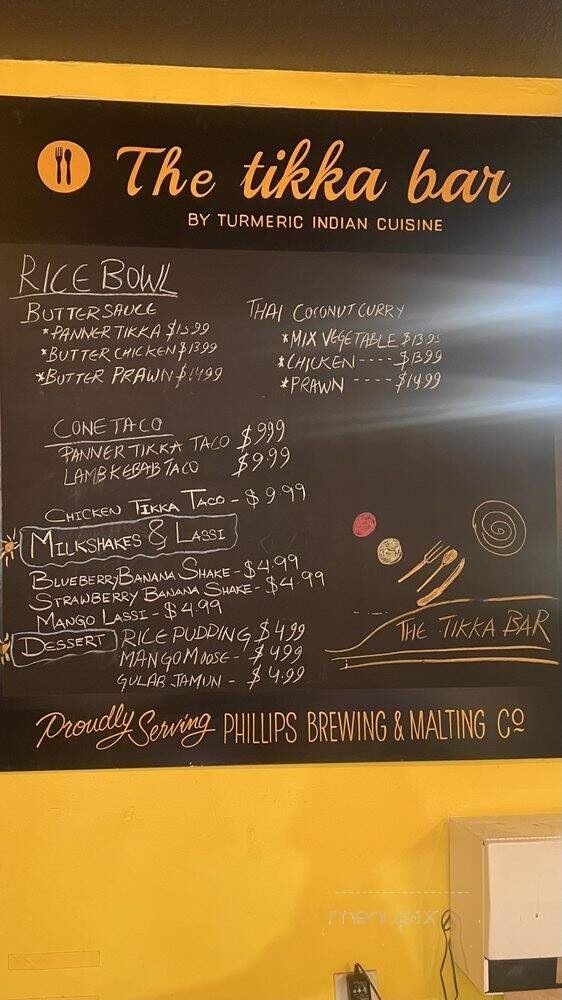 The tikka bar
BY TURMERIC INDIAN CUISINE
RICE BOWL
BUTTER SAUCE
*PANNER TIKKA $13.99
*BUTTER CHICKEN $13.99
*BUTTER PRAWN $14.99
THAI COCONUT CURRY
*MIX VEGETABLE $13.99
*CHICKEN ---- $13.99
*PRAWN ---- $14.99
CONE TACO
PANNER TIKKA TACO $9.99
LAMB KEBAB TACO $9.99
CHICKEN TIKKA TACO - $9.99
MILKSHAKES & LASSI
BLUEBERRY BANANA SHAKE - $4.99
STRAWBERRY BANANA SHAKE - $4.99
MANGO LASSI - $4.99
DESSERT RICE PUDDING $4.99
MANGO MOOSE - $4.99
GULAB JAMUN - $4.99
THE TIKKA BAR
Proudly Serving PHILLIPS BREWING & MALTING Co
menupix